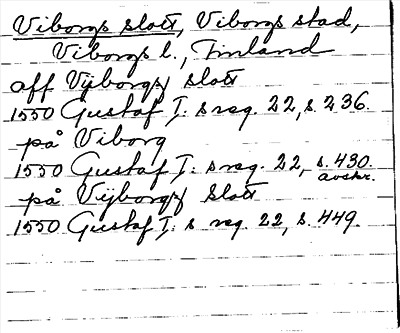 Viborgs slott, Viborgs stad,
Viborgs l., Finland
aff Vijborgs slott
1550 Gustaf I: s reg. 22, s. 236.
på Viborg
1550 Gustaf I: s reg. 22, s. 430.
avskr.
på Vijborgs Slott
1550 Gustaf I: s reg. 22, s. 449.